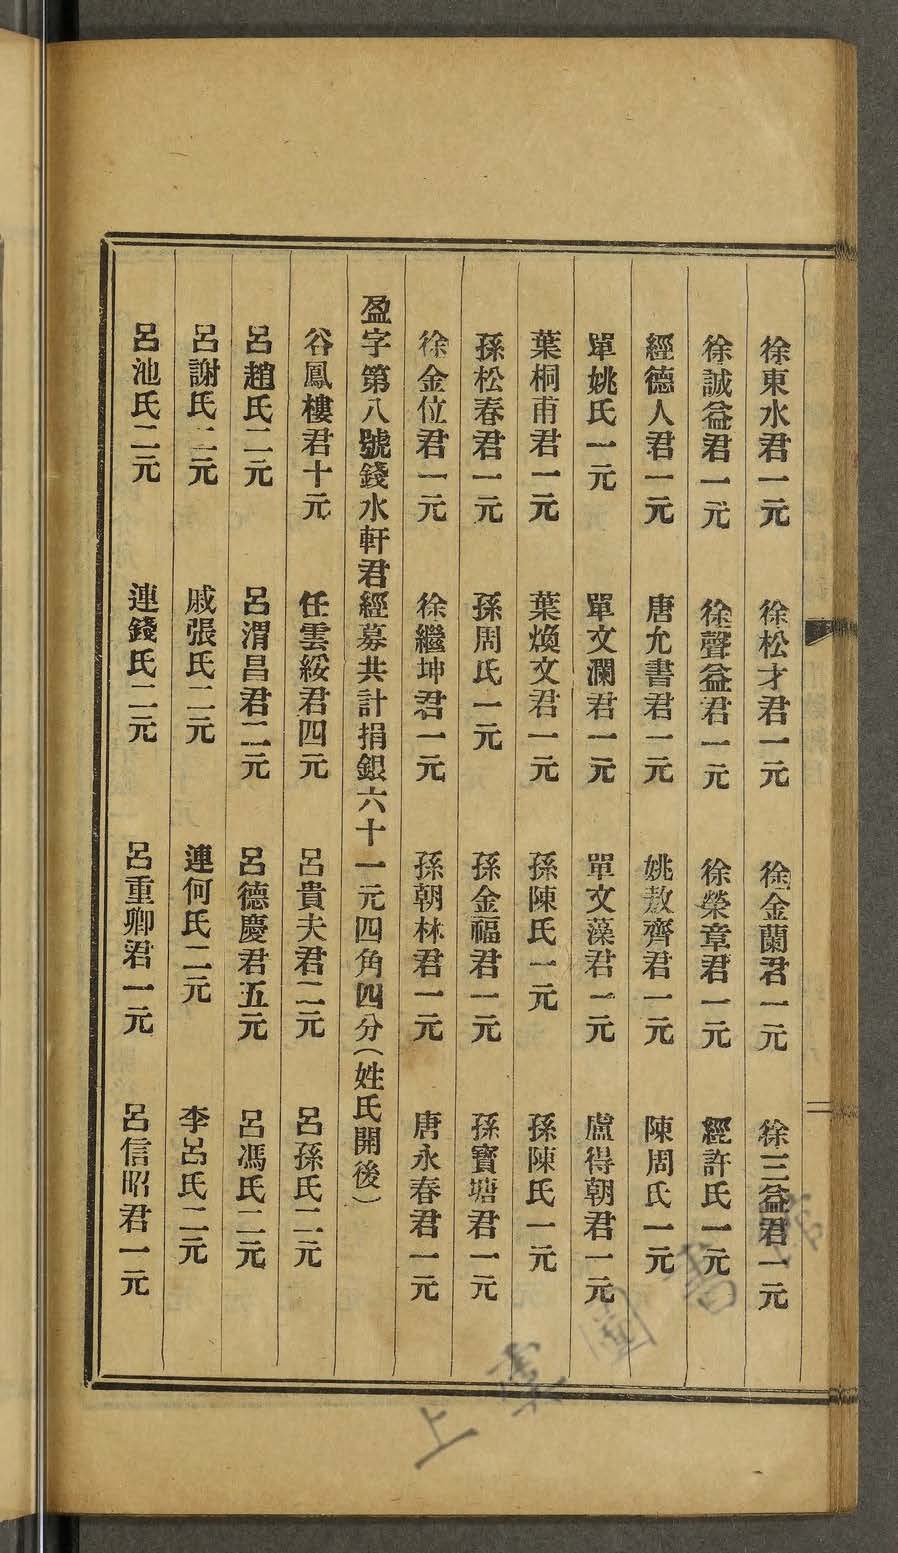 徐東水君一元　徐松才君一元　徐金蘭君一元　徐三益君一元
徐誠益君一元　徐聲益君一元　徐榮章君一元　經許氏一元
經德人君一元　唐允書君一元　姚敖齊君一元　陳周氏一元
單姚氏一元　單文瀾君一元　單文藻君一元　盧得朝君一元
葉桐甫君一元　葉煥文君一元　孫陳氏一元　孫陳氏一元
孫松春君一元　孫周氏一元　孫金福君一元　孫寶塘君一元
徐金位君一元　徐繼坤君一元　孫朝林君一元　唐永春君一元
盈字第八號錢水軒君經募共計捐銀六十一元四角四分（姓氏開後）
谷鳳樓君十元　任雲綏君四元　呂貴夫君二元　呂孫氏二元
呂趙氏二元　呂渭昌君二元　呂德慶君五元　呂馮氏二元
呂謝氏二元　戚張氏二元　連何氏二元　李呂氏二元
呂池氏二元　連錢氏二元　呂重卿君一元　呂信昭君一元
上虞圖書館